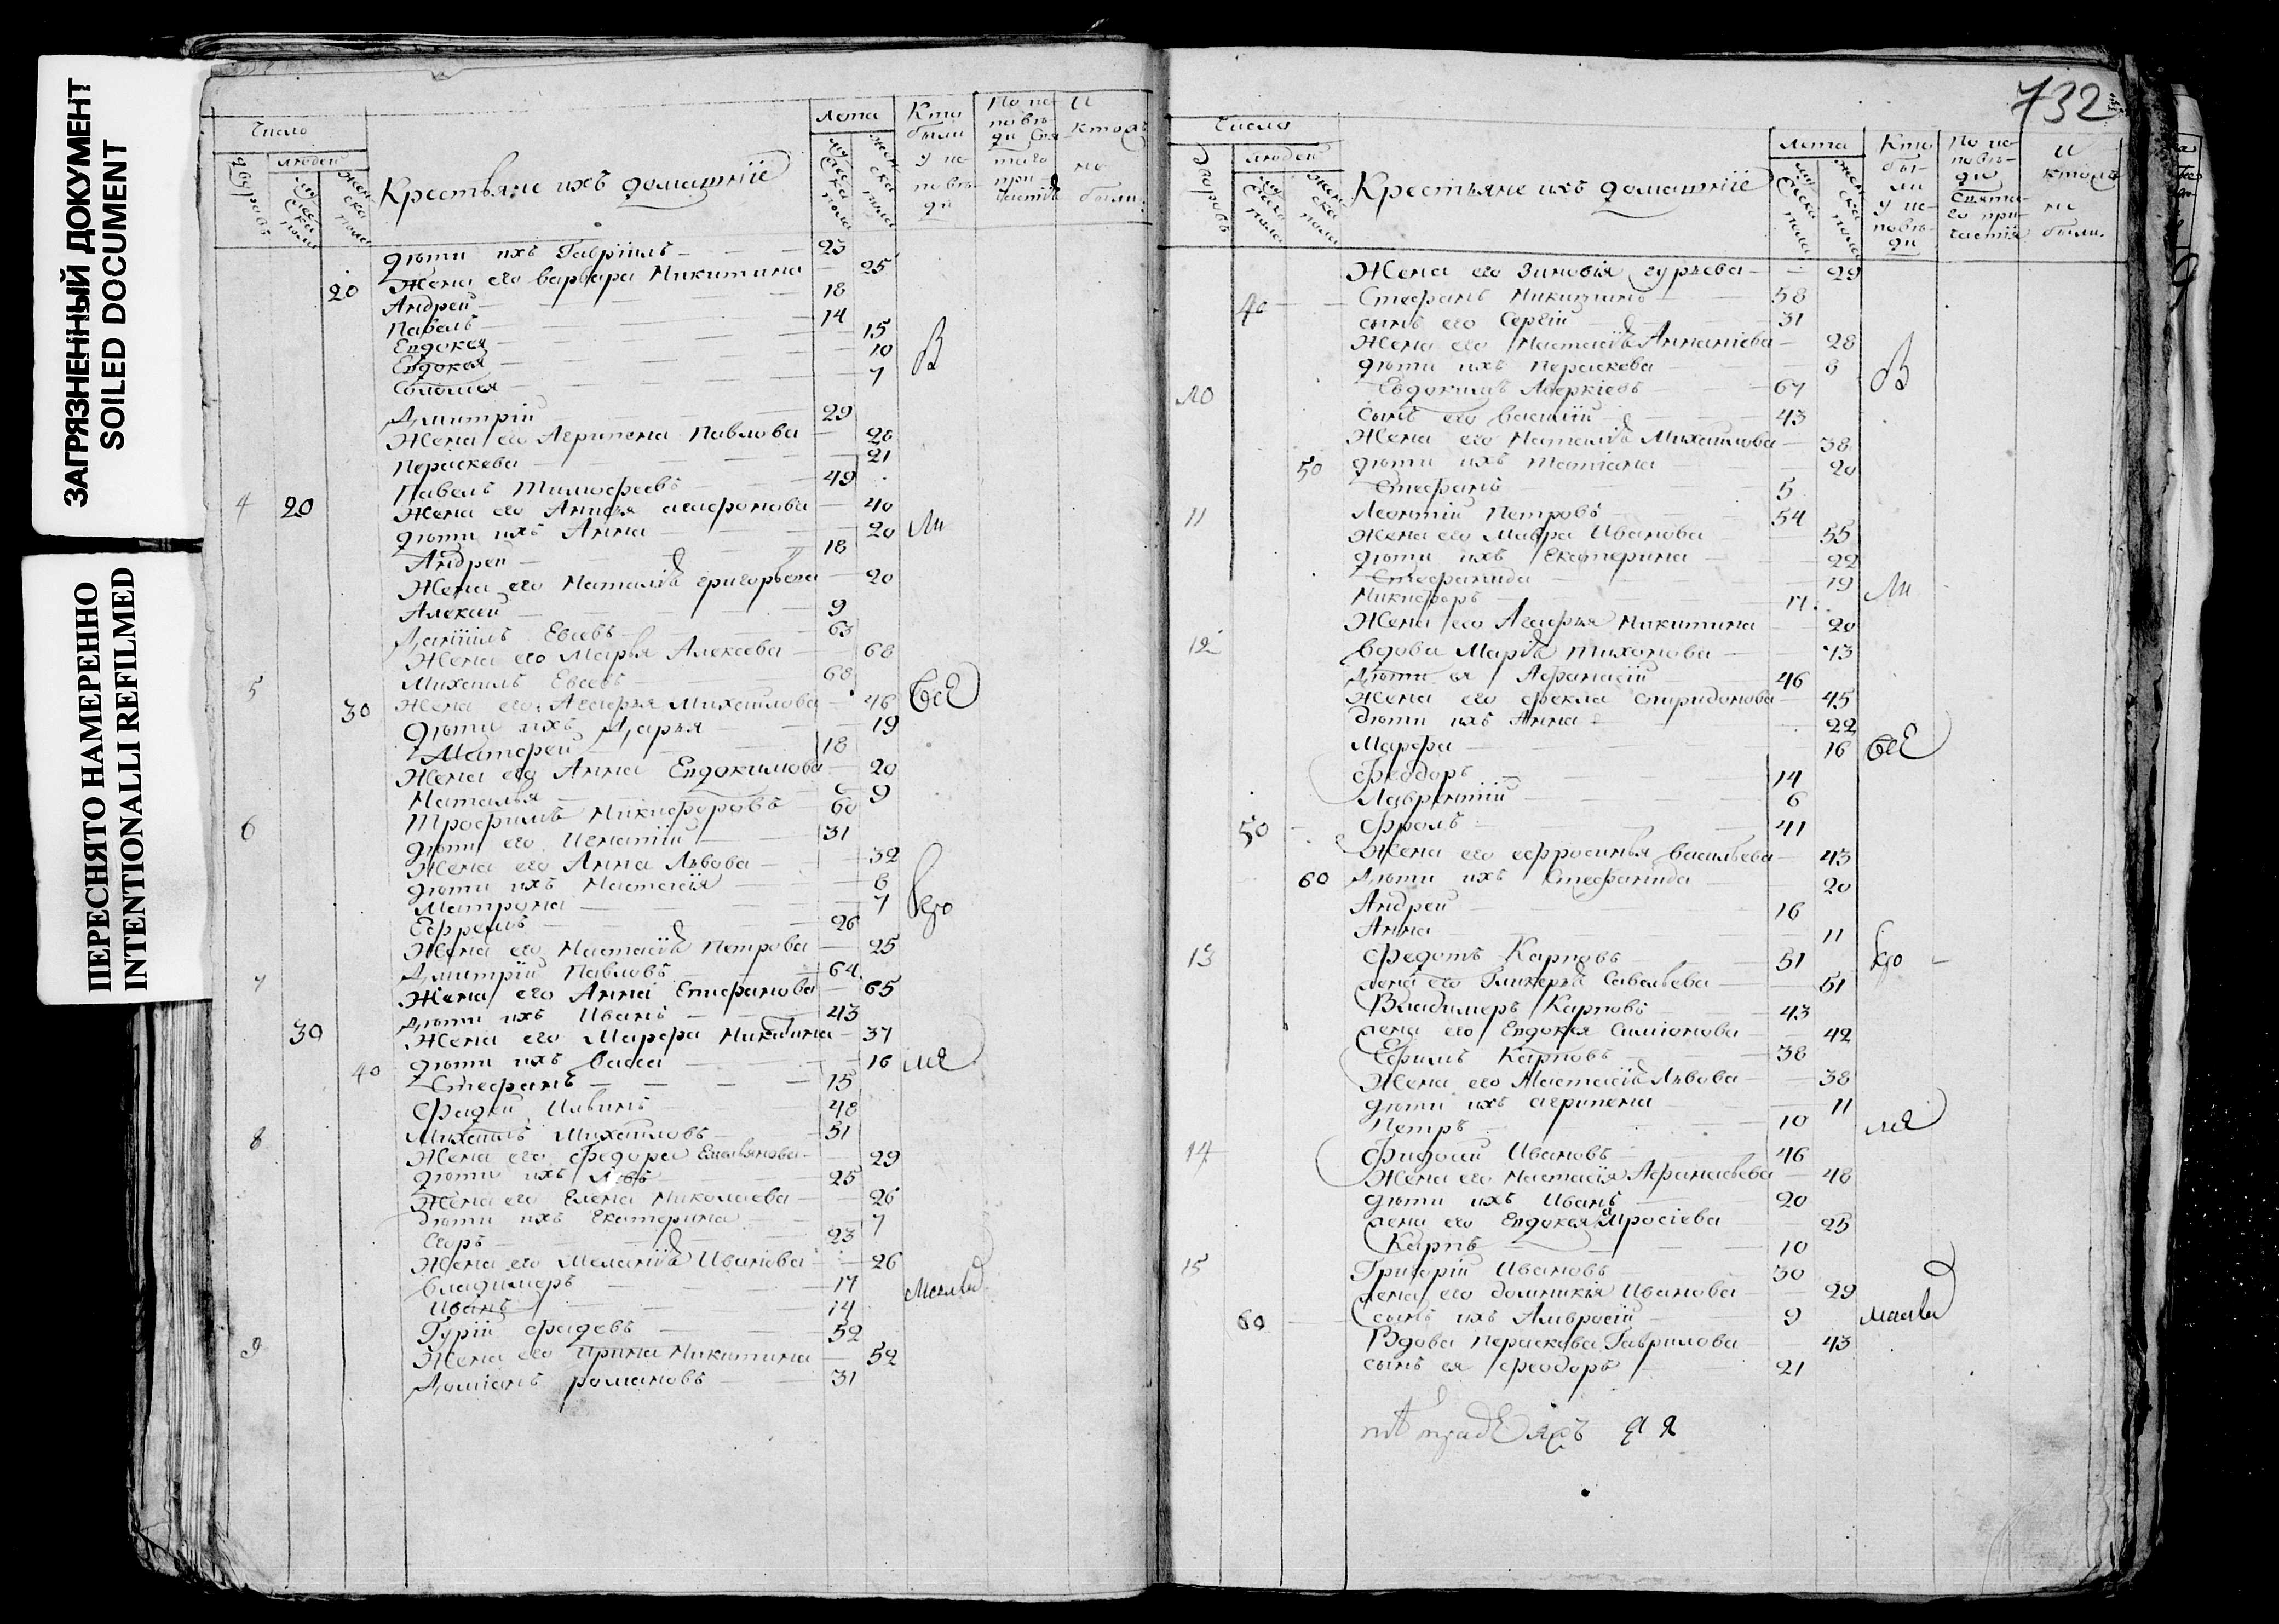 ЗАГРЯЗНЕННЫЙ ДОКУМЕНТ
SOILED DOCUMENT
ПЕРЕСНЯТО НАМЕРЕННО
INTENTIONALLI REFILMED
Число
дворовъ
людей
мужеска пола
женска пола
Крестьяне ихъ домашнїе
Лета
мужеска пола
женска пола
Кто были у исповѣди
По исповѣди святаго причастїя
И кто не были.
дѣти ихъ Гаврїилъ 23
Жена его варвара Никитина 25
20 Андрей 18
Павелъ 14
Евдокея 15
Евдокея 10 В
Соломея 7
Дмитрїй 29
Жена его Агрипена Павлова 28
Пераскева 21
4 20 Павелъ Тимофеевъ 49
Жена его Анисья агафонова 40
дѣти ихъ Анна 20 Ли
Андрей 18
Жена его Наталїя григорьева 20
Алексей 9
Данїилъ Евсевъ 63
Жена его Марья Алексева 68
5 Михаилъ Евсевъ 68
30 Жена его Агафья Михаилова 46 Все
дѣти ихъ Дарья 19
Матфей 18
Жена его Анна Евдокимова 20
Наталья 9
6 Трофимъ Никифоровъ 60
дѣти его Игнатїй 31
Жена его Анна Львова 32
дѣти ихъ Настасїя 8
Матрона 7
Ефремъ 26
Жена его Настасїя Петрова 25
7 Дмитрїй Павловъ 64
Жена его Анна Стефанова 65
дѣти ихъ Иванъ 43
30 Жена его Марфа Никитина 37
40 дѣти ихъ васса 16
Стефанъ 15
Фадей Ильинъ 48
8 Михаилъ Михаиловъ 51
Жена его федора Емельянова 29
дѣти ихъ Левъ 25
Жена его Елена Николаева 26
дѣти ихъ Екатерина 7
Егоръ 23
Жена его Меланїя Иванова 26
владимеръ 17
Иванъ 14
9 Гурїй фадевъ 52
Жена его ирина Никитина 52
Домїанъ романовъ 31
732
Число
дворовъ
людей
мужеска пола
женска пола
Крестьяне ихъ домашнїе
Лета
мужеска пола
женска пола
Кто были у исповѣди
По исповѣди Святаго причастїя
И кто не были.
Жена его Зиновїя гурьева 29
40 Стефанъ Никитинъ 58
сынъ его Сергїй 31
Жена его Настасїя Ананїева 28
дѣти ихъ Пераскева 8 В
10 Евдокимъ Аверкїевъ 67
Сынъ его василїй 43
Жена его Наталїя Михаилова 38
50 дѣти ихъ татїана 20
Стефанъ 5
11 Леонтїй Петровъ 54
Жена его Мавра Иванова 55
дѣти ихъ Екатерина 22
Стефанида 19 Ли
Никифоръ 17
Жена его Агафья Никитина 20
12 вдова Марїя тихонова 73
Дѣти ея Афанасїй 46
Жена его фекла спиридонова 45
дѣти ихъ Анна 22
Марфа 16 все
Феодоръ 14
Лаврентїй 6
50 Фролъ 41
Жена его ефросинья васильева 43
60 Дѣти ихъ Стефанида 20
Андрей 16
Анна 11
13 Федотъ Карповъ 51
жена его Гликерїя Савельева 51
Владимеръ Карповъ 43
жена его Евдокея Симїонова 42
Ефимъ Карповъ 38
Жена его Настасїя Львова 38
дѣти ихъ агрипена 11
Петръ 10
14 Фидосей Ивановъ 46
Жена его Настасїя Афанасьева 48
дѣти ихъ Иванъ 20
жена его Евдокея Амросїева 25
Карпъ 10
15 Григорїй Ивановъ 30
жена его домникїя Иванова 29
60 сынъ ихъ Амвросїй 9
Вдова Пераскева Гаврилова 43
сынъ ея феодоръ 21